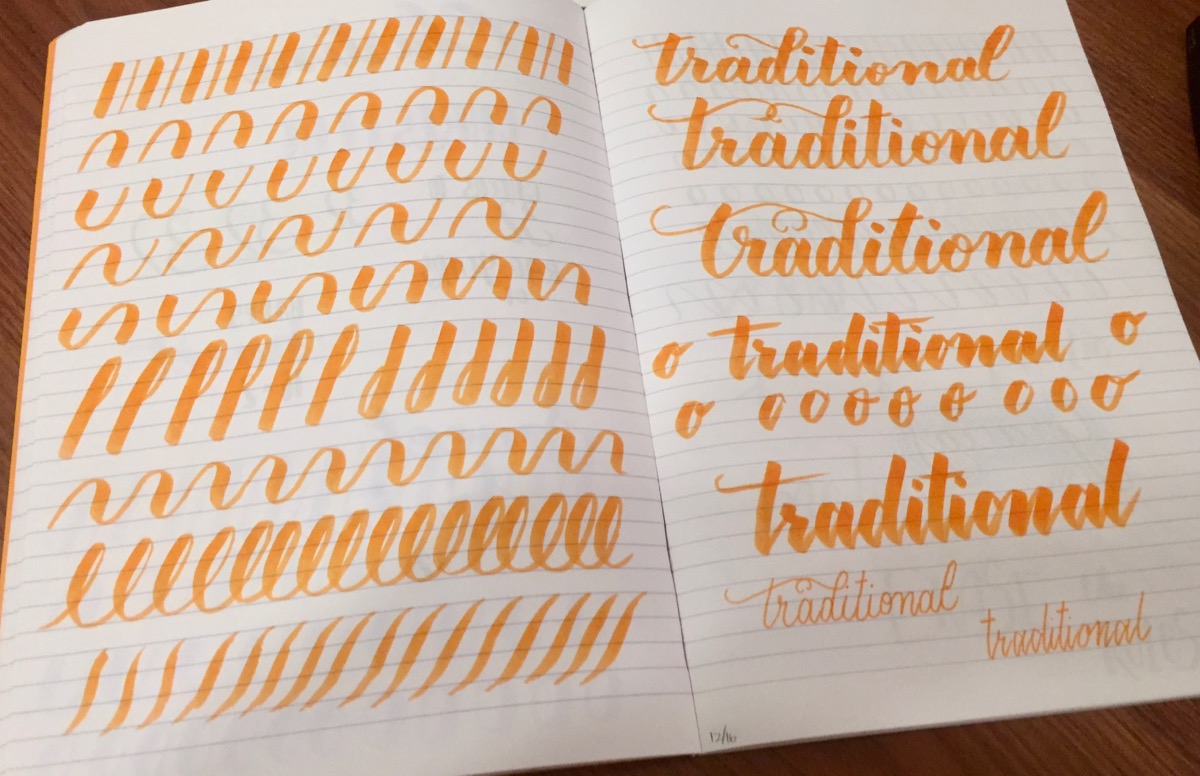 traditional
traditional
traditional
traditional
traditional
traditional
traditional
12/16